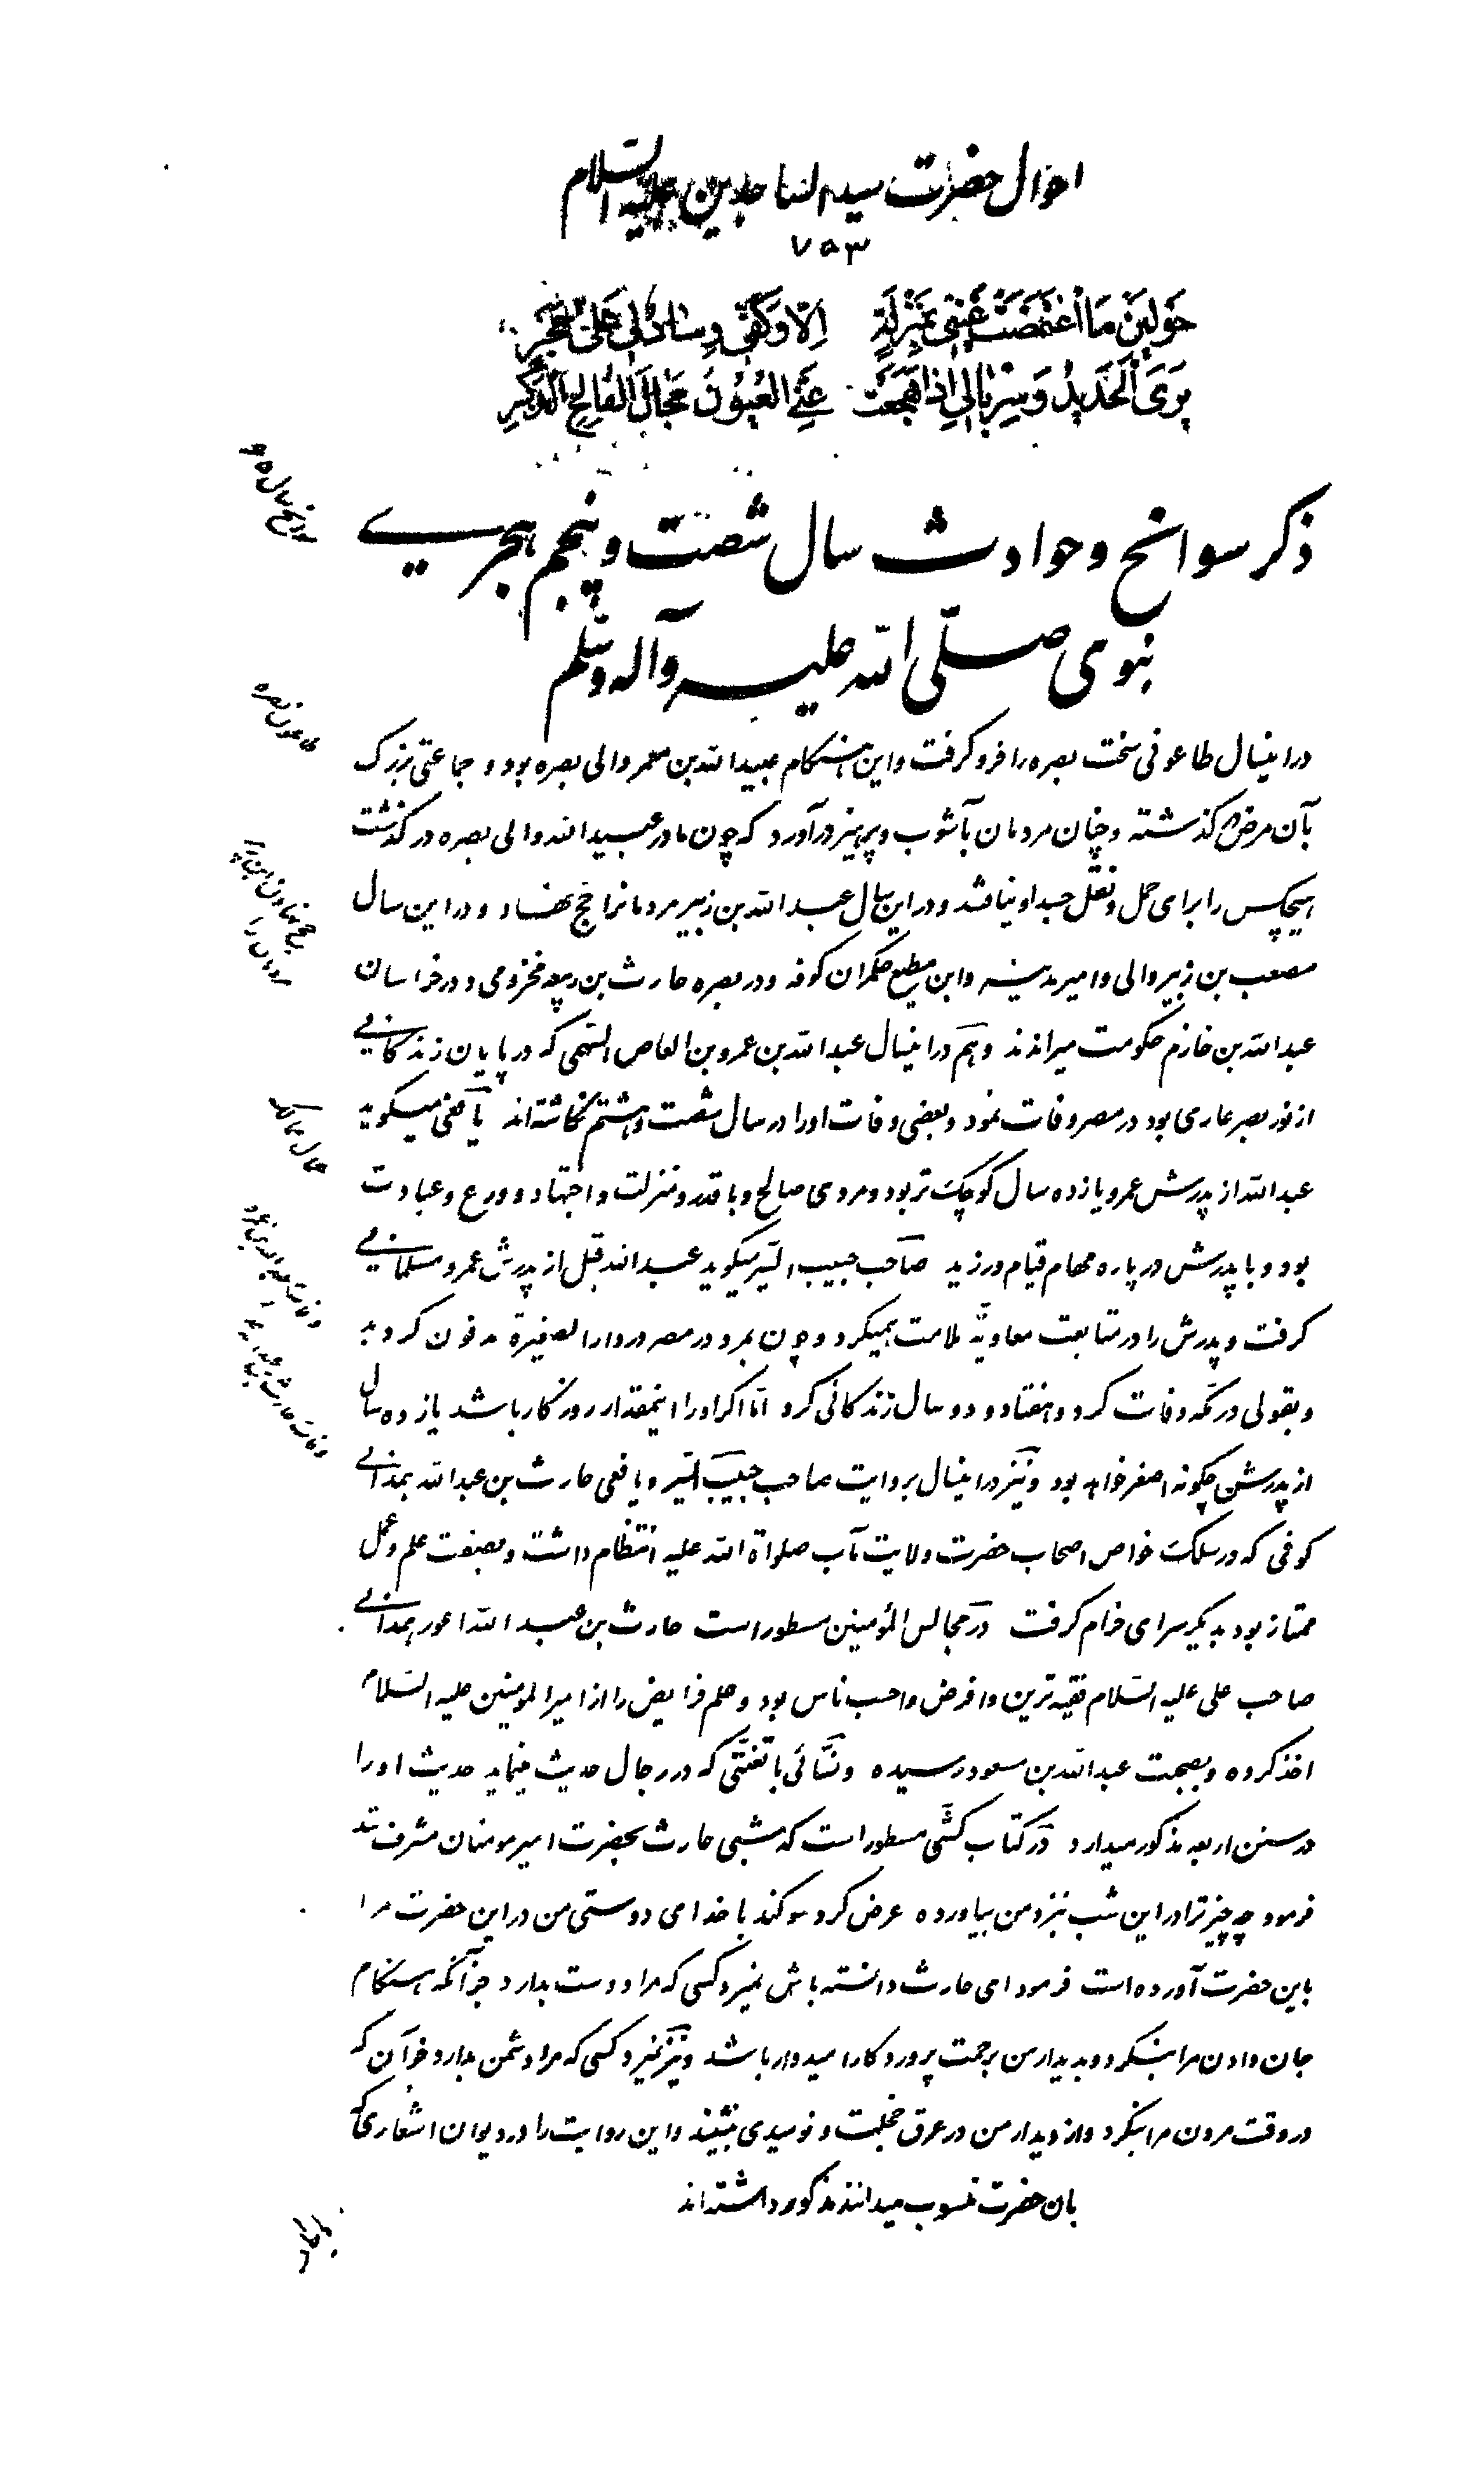 احوال حضرت سید الساجدین علیه السلام
۷۵۳
حَولَینِ مَا اغتَمَضَت عَینی بِمَنزِلَةٍ اِلّا وَکَفّی وِسادٌ لی عَلی حَجَرِ
بَزّی الحَدیدُ وَسِربالی اِذا هَجَعَت عَنّی العُیُونُ مَجالَ القالِحِ الذَّکَرِ
ذکر سوانح و حوادث سال شصت و پنجم هجری
نبوی صلّی الله علیه و آله و سلّم
دراینسال طاعونی سخت بصره را فرو گرفت و این هنگام عبیدالله بن معمر والی بصره بود و جماعتی بزرک
بآن مرض گذشته و چنان مردمان بآشوب و پرهیز درآورد که چون مادر عبیدالله والی بصره در گذشت
هیچکس را برای حمل و نقل جسد او نیافتند و در این سال عبدالله بن زبیر مردمانرا حج نهاد و در این سال
مصعب بن زبیر والی و امیر مدینه و ابن مطیع حکمران کوفه و در بصره حارث بن ربیعه مخزومی و در خراسان
عبدالله بن خازم حکومت میراندند و هم دراینسال عبدالله بن عمرو بن العاص السّهمی که در پایان زندکانی
از نور بصر عاری بود در مصر وفات نمود و بعضی وفات اورا در سال شصت و هشتم نکاشته‌اند یافعی میکوید
عبدالله از پدرش عمرو یازده سال کوچک تر بود و مردی صالح و با قدر و منزلت و اجتهاد و ورع و عبادت
بود و با پدرش در پاره مهام قیام ورزید صاحب حبیب السّیر میکوید عبدالله قبل از پدرش عمرو مسلمانی
کرفت و پدرش را در متابعت معاویّه ملامت همیکرد و چون بمرد در مصر در دار الصغیرة مدفون کردید
و بقولی در مکّه وفات کرد و هفتاد و دو سال زندکانی کرد امّا اکر اورا اینمقدار روزکار باشد یازده سال
از پدرش چکونه اصغر خواهد بود و نیز دراینسال بروایت صاحب حبیب السّیر و یافعی حارث بن عبدالله همدانی
کوفی که در سلک خواص اصحاب حضرت ولایت مآب صلواة الله علیه انتظام داشت و بصفت علم و عمل
ممتاز بود بدیکر سرای خرام کرفت در مجالس المؤمنین مسطور است حارث بن عبدالله اعور همدانی
صاحب علی علیه السّلام فقیه ترین و افرض و احسب ناس بود و علم فرایض را از امیرالمومنین علیه السّلام
اخذ کرده و بصحبت عبدالله بن مسعود رسیده و نسّائی با تعنّتی که در رجال حدیث مینماید حدیث اورا
در سنن اربعه مذکور میدارد در کتاب کشّی مسطور است که شبی حارث بحضرت امیر مومنان مشرف شد
فرمود چه چیز ترا در این شب بنزد من بیاورده عرض کرد سوکند با خدای دوستی من در این حضرت مرا
باین حضرت آورده است فرمود ای حارث دانسته باش نمیرد کسی که مرا دوست بدارد جز آنکه هنکام
جان دادن مرا بنکرد و بدیدار من برحمت پروردکار امیدوار باشد و نیز نمیرد کسی که مرا دشمن بدارد جز آن که
در وقت مردن مرا بنکرد و از دیدار من در عرق خجلت و نومیدی بنشیند و این روایت را در دیوان اشعاری که
بان حضرت منسوب میدانند مذکور داشته‌اند
سوانح سال ۶۵
طاعون بصره
عمال ممالک